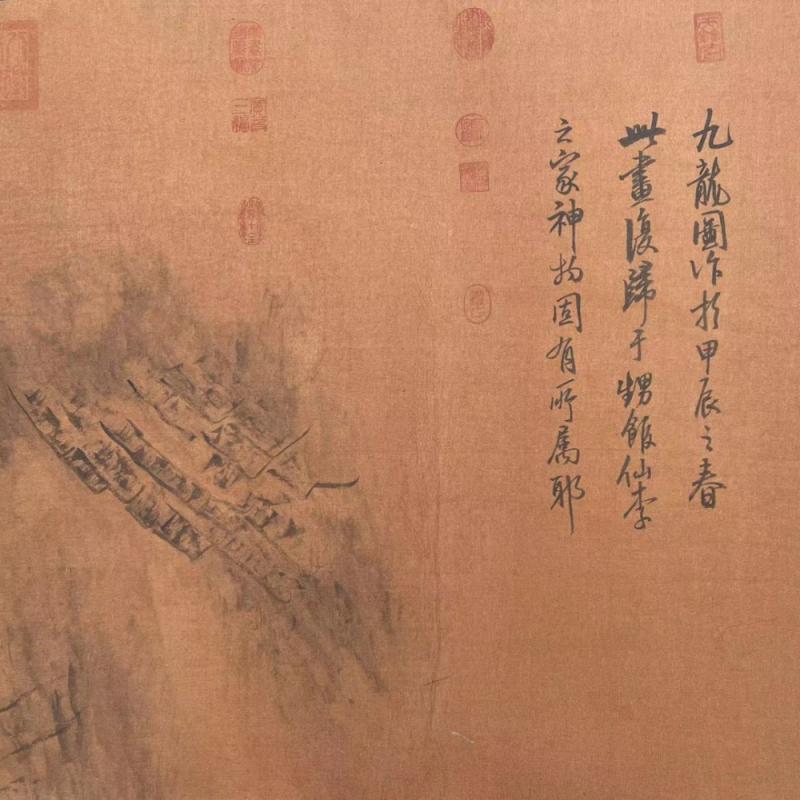 九龍圖作於甲辰之春
此畫復歸于甥館仙李
之家神物固有所属耶